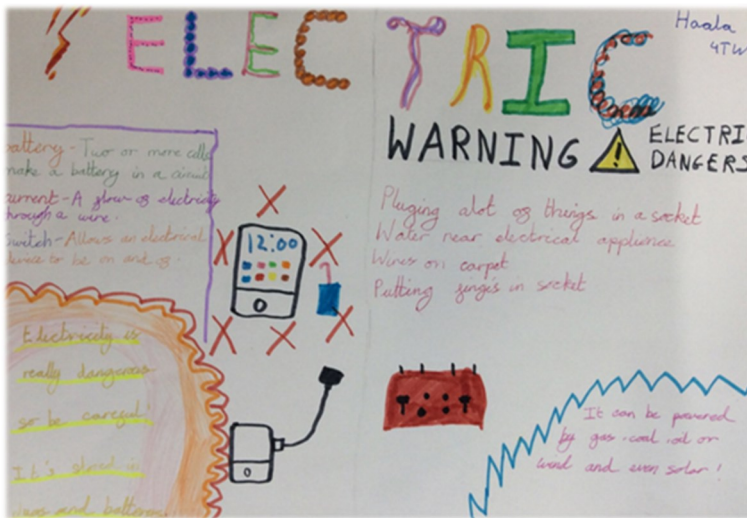 ELECTRIC
Haala
4TW
WARNING
ELECTRI
DANGERS
battery - Two or more cells
make a battery in a circuit
current - A flow of electricity
through a wire.
Switch - Allows an electrical
device to be on and of.
Pluging alot of things in a socket
Water near electrical applience
Wires on carpet
Putting fingis in socket
12:00
Electricity is
really dangerous
so be careful!
It's stored in
wires and batteries
It can be powered
by gas, coal, oil or
wind and even solar!